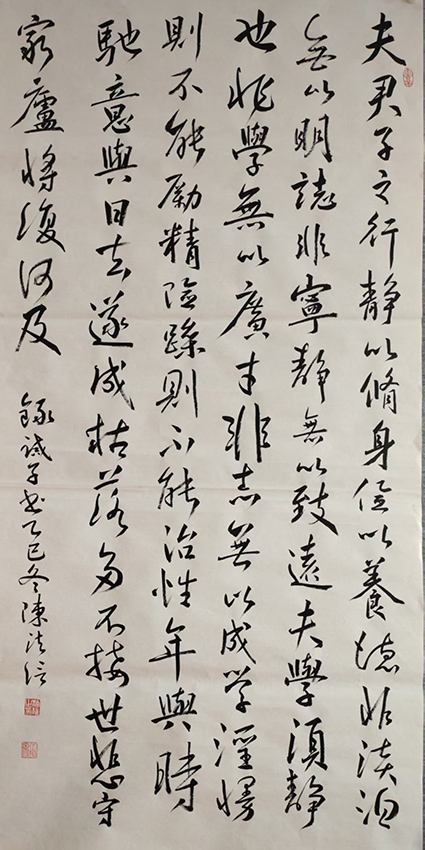 夫君子之行靜以脩身儉以養德非淡泊
無以明誌非寧靜無以致遠夫學須靜
也非學無以廣才非志無以成學淫慢
則不能勵精險躁則不能治性年與時
馳意與日去遂成枯落多不接世悲守
窮廬將復何及
錄誡子書乙巳冬陳法信